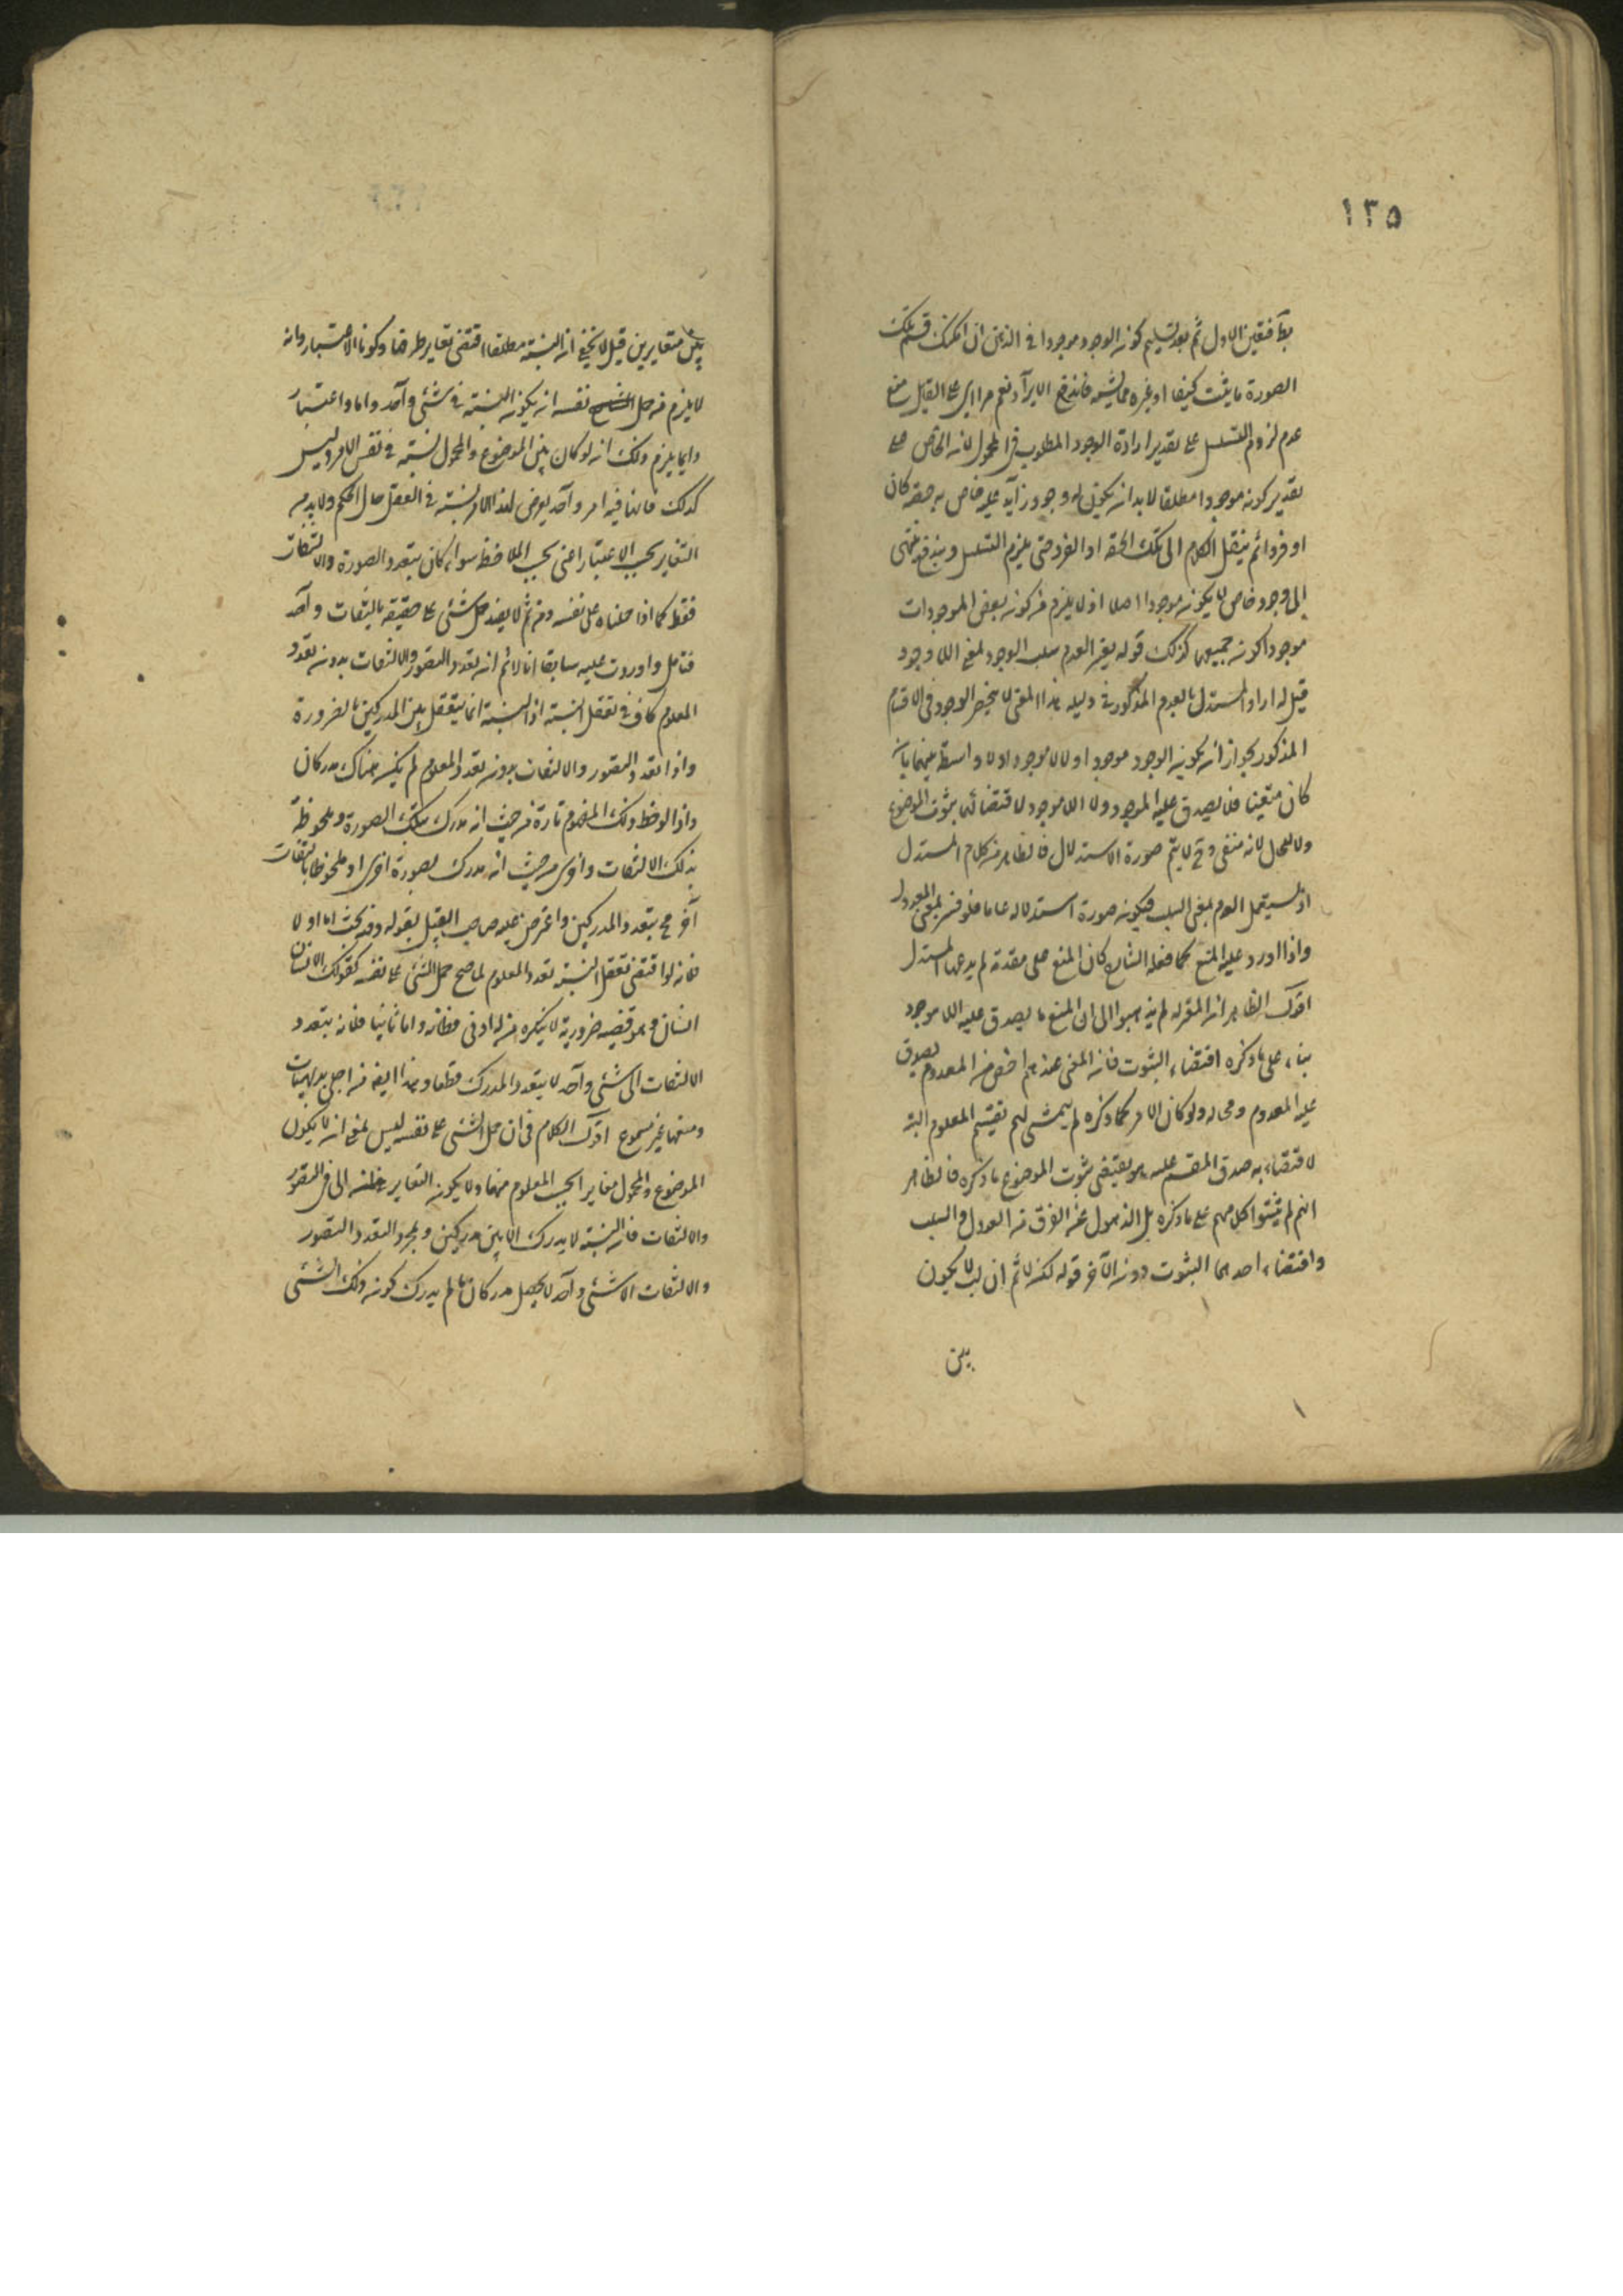 ١٣٥
فتعين الاول ثم بعد تسليم كونه الوجود موجودا في الذهن ان امكنك قسم تلك
الصورة ما يثبت كيفا او غيره مما فاندفع الايراد نعم يرد على القيل منع
عدم لزوم التسلسل على تقدير ارادة الوجود المطلوب في المحمول لانه الخاص على
تقدير كونه موجودا مطلقا لا بد ان يكون له وجود زايد عليه خاص به حصة كان
او فردا ثم ينقل الكلام الى تلك الحصة او الفرد حتى يلزم التسلسل ويندفع
الى وجود خاص لا يكون موجودا اصلا اذ لا يلزم من كونه بعض الموجودات
موجودا كونه جميعها كذلك قوله يعني العدم سلب الوجود لمعنى اللاوجود
قيل له اراد المستدل بالعدم المذكور في دليله هذا المعنى لا ينحصر الوجود في الاقسام
المذكور بجواز انه يكون الوجود موجودا ولا لا موجودا ولا واسطة بينهما بانه
كان متعينا فلا يصدق عليه الموجود ولا اللاموجود لاقتضائهما ثبوت الموضوع
ولا للمحل لانه منفي وح لا يتم صورة الاستدلال فالظاهر من كلام المستدل
انه يستعمل العدم بمعنى السلب فيكون صورة استدلاله عاما فلو فسر بمعنى العدول
واذا اورد عليه المنع كما فعله الشارح كان المنع على مقدمة لم يدعها المستدل
اقول الظاهر انه المعتزلة لم يذهبوا الى ان المنع ما يصدق عليه اللاموجود
بناء على ما ذكره اقتضاء الثبوت فانه المنفي عندهم اخص من المعدوم يصدق
عليه المعدوم ومحاله ولو كان الامر كما ذكره لم يتمش لهم تقسيم المعلوم البتة
لاقتضائه صدق المقسم عليه وهو يقتضي ثبوت الموضوع ما ذكره فالظاهر
انهم لم يثبتوا كلامهم على ما ذكره بل الذهول عن الفرق من العدول والسلب
واقتضاء احدهما الثبوت دون الآخر قوله لكنه لا ثم ان لا يكون
بين
بين متغايرين قيل لا يخفى انه النسبة مطلقا اقتضى تغاير طرفها وكونا الاعتبار وانه
لا يلزم من حمل الشيء نفسه انه يكون النسبة في شيء واحد واما واعتبار
وانما يلزم ذلك انه لو كان بين الموضوع والمحمول نسبة في نفس الامر وليس
كذلك فانما فيه امر واحد يعرض لهذا الامر نسبة في العقل حال الحكم ولا بد من
التغاير بحسب الاعتبار اعني بحسب الملاحظة سواء كان بتعدد الصورة والالتفات
فقط كما اذا حملناه على نفسه ومن ثم لا يفيد حمل شيء على حقيقة بالتفات واحد
فتامل واوردت عليه سابقا انا لا ثم انه تعدد التصور والالتفات بدون تعدد
المعلوم كاف في تعقل النسبة اذ النسبة انما يتعقل بين المدركين بالضرورة
واذا تعدد التصور والالتفات بدون تعدد المعلوم لم يكن هناك مدركان
واذا لوحظ ذلك المفهوم تارة من حيث انه مدرك بتلك الصورة وملحوظة
بذلك الالتفات واخرى من حيث انه مدرك بصورة اخرى او ملحوظا بالتفات
آخر مح يتعدد المدركين واعترض عليه صاحب القيل بقوله وفيه بحث اما اولا
فلانه لو اقتضى تعقل النسبة تعدد المعلوم لما صح حمل الشيء على نفسه كقولك الانسان
انسان وهو قضية ضرورية لا ينكره من له ادنى فطانة واما ثانيا فلانه بتعدد
الالتفات الى شيء واحد لا يتعدد المدرك قطعا وهذا ايضا من اجلى بديهيات
ومنعها غير مسموع اقول الكلام في ان حمل الشيء على نفسه ليس بمعنى انه لا يكون
الموضوع والمحمول مغايرا بحسب المعلوم منهما ولا يكون التغاير الا في التصور
والالتفات فانه النسبة لا يدرك الا بين مدركين وبمجرد التعدد التصور
والالتفات الا شيء واحد لا يحصل مدركان ما لم يدرك كونه ذلك الشيء